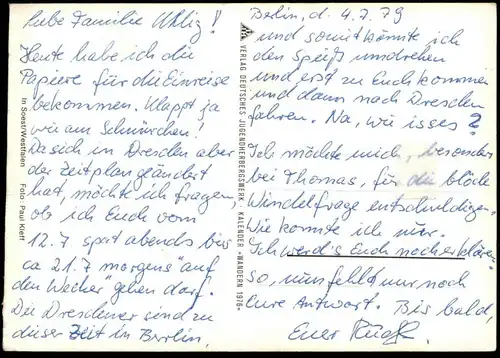 Liebe Familie Uhlig!
Heute habe ich die
Papiere für die Einreise
bekommen. Klappt ja
wie am Schnürchen!
Da sich in Dresden aber
der Zeitplan geändert
hat, möchte ich fragen,
ob ich Euch vom
12.7 spät abends bis
ca 21.7 morgens "auf
den Wecker" gehen darf.
Die Dresdener sind zu
dieser Zeit in Berlin,
In Soest/Westfalen Foto: Paul Kleff
VERLAG DEUTSCHES JUGENDHERBERGSWERK · KALENDER »WANDERN 1976«
Berlin, d. 4.7.79
und somit könnte ich
den Spieß umdrehen
und erst zu Euch kommen
und dann nach Dresden
fahren. Na, wie isses?
Ich möchte mich, besonders
bei Thomas, für die blöde
Windelfrage entschuldigen.
Wie konnte ich nur.
Ich werd's Euch noch erklären.
So, nun fehlt nur noch
Eure Antwort. Bis bald,
Euer